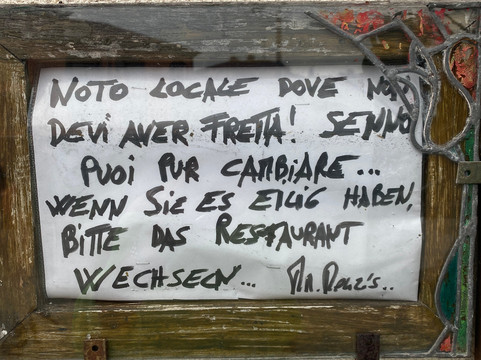 NOTO LOCALE DOVE NON
DEVI AVER FRETTA! SENNO
PUOI PUR CAMBIARE...
WENN SIE ES EILIG HABEN,
BITTE DAS RESTAURANT
WECHSELN...